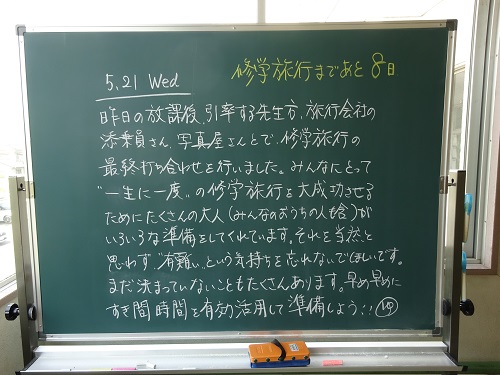 修学旅行まであと8日
5.21 Wed
昨日の放課後、引率する先生方、旅行会社の
添乗員さん、写真屋さんとで、修学旅行の
最終打ち合わせを行いました。みんなにとって
"一生に一度"の修学旅行を大成功させる
ためにたくさんの大人(みんなのおうちの人も含)が
いろいろな準備をしてくれています。それを当然と
思わず、"有難い"という気持ちを忘れないでほしいです。
まだ決まっていないこともたくさんあります。早め早めに
すき間時間を有効活用して準備しよう!!